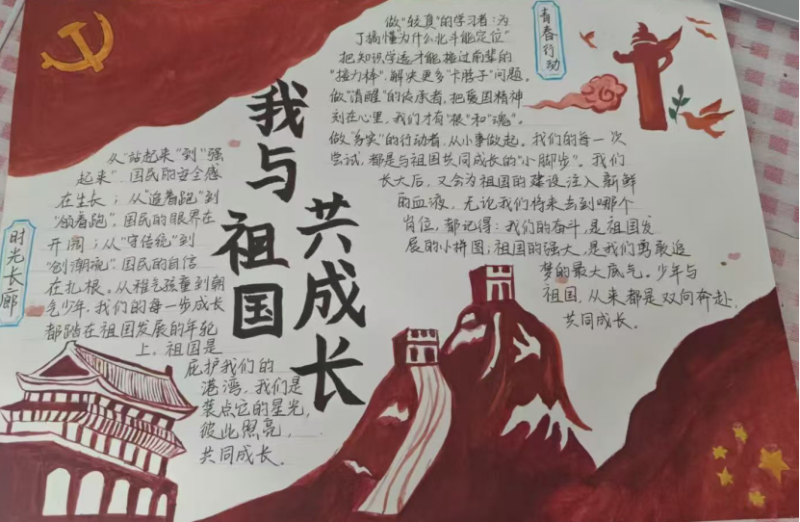 我与祖国
共成长
时光长廊
从"站起来"到"强
起来",国民的安全感
在生长;从"追着跑"到
"领着跑",国民的眼界在
开阔;从"守传统"到
"创潮流",国民的自信
在扎根。从稚气孩童到朝
气少年,我们的每一步成长
都踏在祖国发展的年轮
上。祖国是
庇护我们的
港湾,我们是
装点它的星光,
彼此照亮,
共同成长。
青春行动
做"较真"的学习者:为
了搞懂为什么北斗能定位"
把知识学透才能接过前辈的
"接力棒",解决更多"卡脖子"问题。
做"清醒"的传承者,把爱国精神
刻在心里,我们才有"根"和"魂"。
做"务实"的行动者,从小事做起。我们的每一次
尝试,都是与祖国共同成长的"小脚步"。我们
长大后,又会为祖国的建设注入新鲜
的血液,无论我们将来去到哪个
岗位,都记得:我们的奋斗,是祖国发
展的小拼图;祖国的强大,是我们勇敢追
梦的最大底气。少年与
祖国,从来都是双向奔赴,
共同成长。